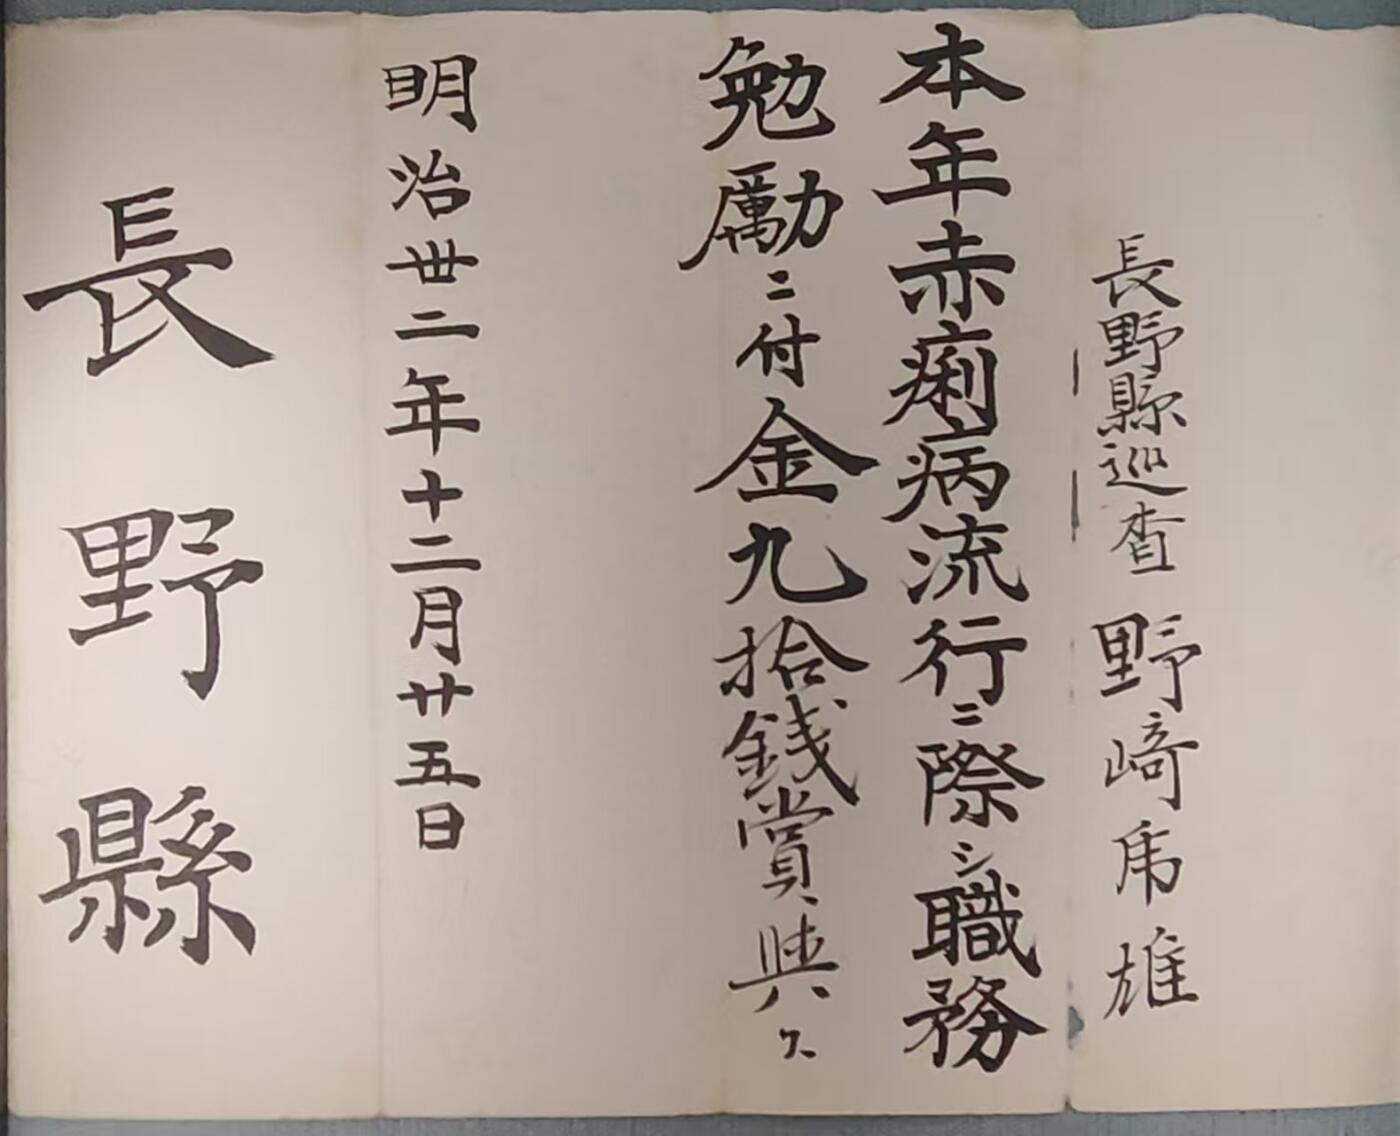 長野縣巡査 野﨑虎雄
本年赤痢病流行ニ際シ職務
勉勵ニ付金九拾銭賞與ス
明治丗二年十二月廿五日
長野縣